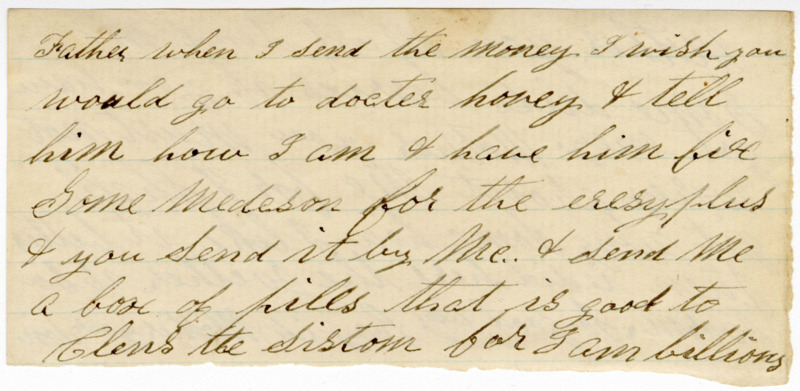 Father when I send the money I wish you
would go to docter hovey & tell
him how I am & have him fix
Some Medeson for the eresyplus
& you Send it by Me. & Send Me
a box of pills that is good to
Clens the Sistom for I am billious